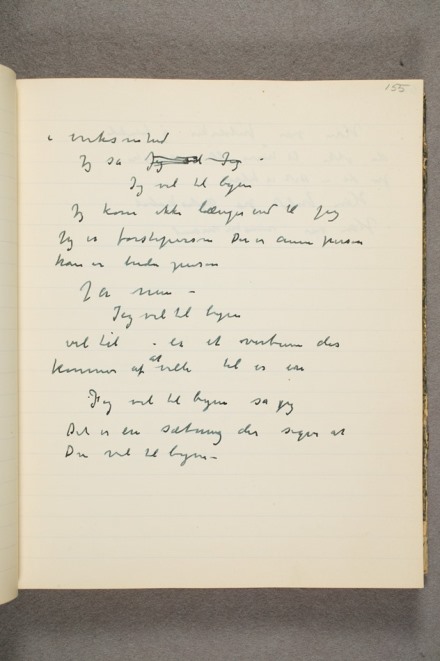 155
i virksomhed
Jeg sa Jeg sd Jeg -
Jeg vil til byen
Jeg kom ikke længer end til jeg
Jeg er førsteperson Du er anden person
han er tredie person
Ja men -
Jeg vil til byen
vil til - er et verbum der
kommer af at ville til er en
Jeg vil til byen sa jeg
Det er en sætning der siger at
Du vil til byen -